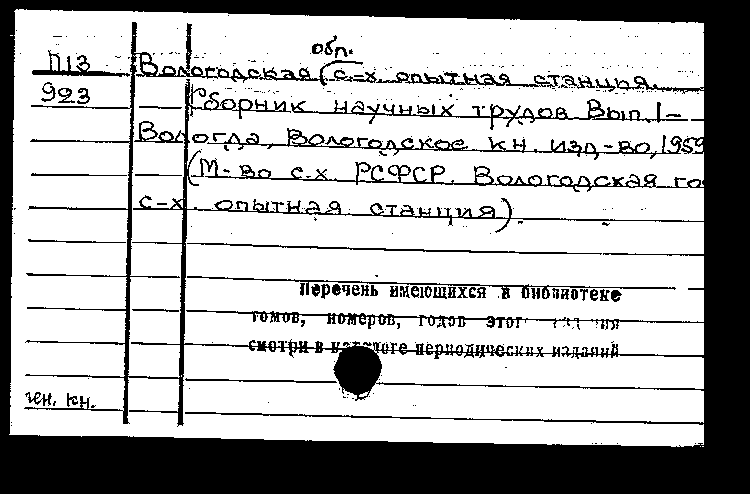 обл.
П13 Вологодская с.-х. опытная станция.
923 Сборник научных трудов Вып. 1-
Вологда, Вологодское кн. изд-во, 1959
(М-во с.х. РСФСР. Вологодская го
с-х. опытная станция).
Перечень имеющихся в библиотеке
томов, номеров, годов этого издания
смотри в каталоге периодических изданий
ген. кн.